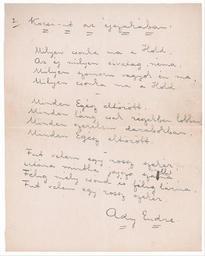 2. Kocsi-út az éjszakában.
Milyen csonka ma a Hold,
Az éj milyen sivatag, néma,
Milyen szomorú vagyok én ma,
Milyen csonka ma a Hold.
Minden Egész eltörött,
Minden láng csak részekben lobban,
Minden szerelem darabokban,
Minden Egész eltörött.
Fut velem egy rossz szekér,
Utána mintha jajszó szállna,
Félig mély csönd és félig lárma,
Fut velem egy rossz szekér.
Ady Endre.